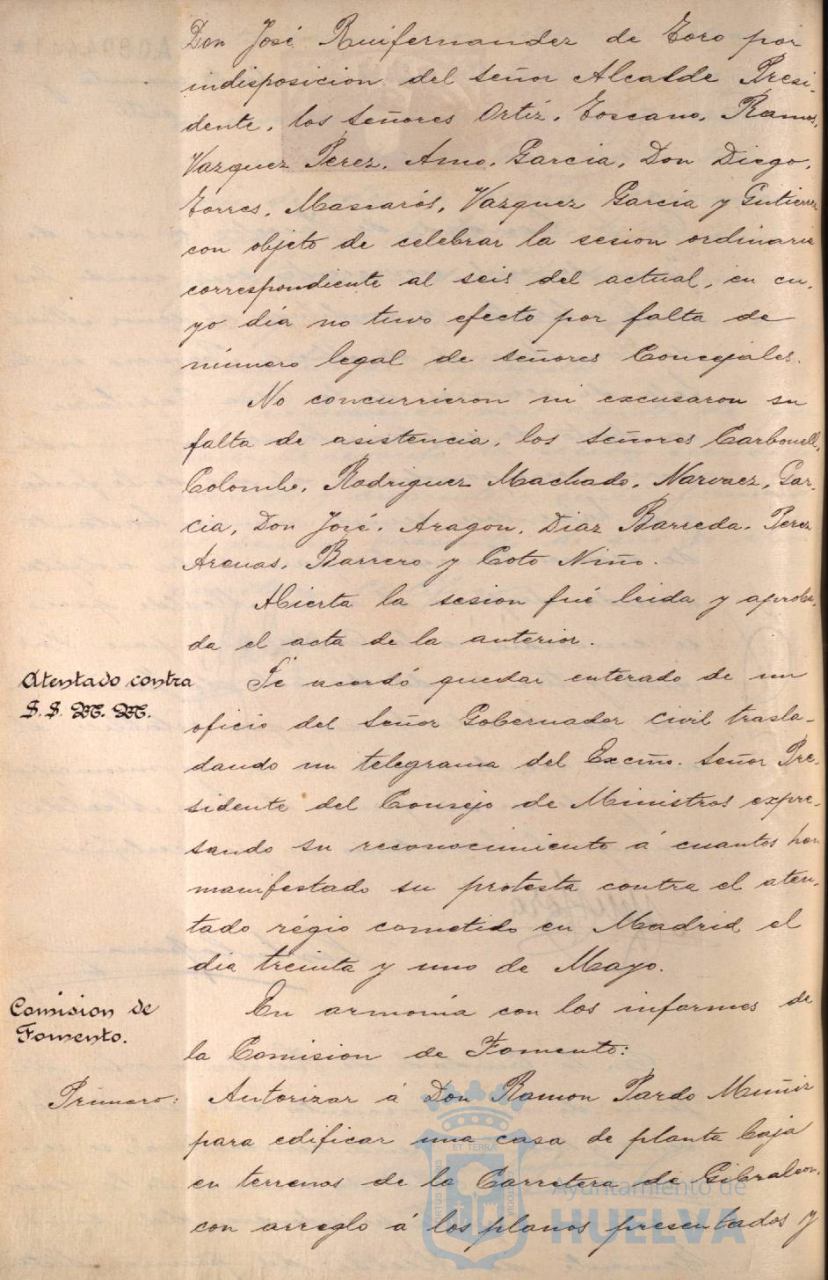 Don José Ruifernandez de Toro por
indisposicion del señor Alcalde Presi-
dente, los señores Ortíz, Toscano, Ramos,
Vazquez Perez, Amo, Garcia, Don Diego,
Torres, Mascarós, Vazquez García y Gutierrez
con objeto de celebrar la sesion ordinaria
correspondiente al seis del actual, en cu-
yo día no tuvo efecto por falta de
número legal de señores Concejales.
No concurrieron ni excusaron su
falta de asistencia, los señores Carbonell,
Colombo, Rodriguez Machado, Narvaez, Gar-
cia, Don José, Aragon, Diaz Barreda, Perez
Arenas, Barrero y Coto Niño.
Abierta la sesion fué leida y aproba-
da el acta de la anterior.
Atentado contra
S. S. M. M.
Se acordó quedar enterado de un
oficio del Señor Gobernador civil trasla-
dando un telegrama del Excmo. Señor Pre-
sidente del Consejo de Ministros expre-
sando su reconocimiento á cuantos han
manifestado su protesta contra el aten-
tado régio cometido en Madrid el
dia treinta y uno de Mayo.
Comision de
Fomento.
En armonía con los informes de
la Comision de Fomento:
Primero: Autorizar á Don Ramon Pardo Muñiz
para edificar una casa de planta baja
en terrenos de la Carretera de Gibraleon,
con arreglo á los planos presentados y
Ayuntamiento de
HUELVA